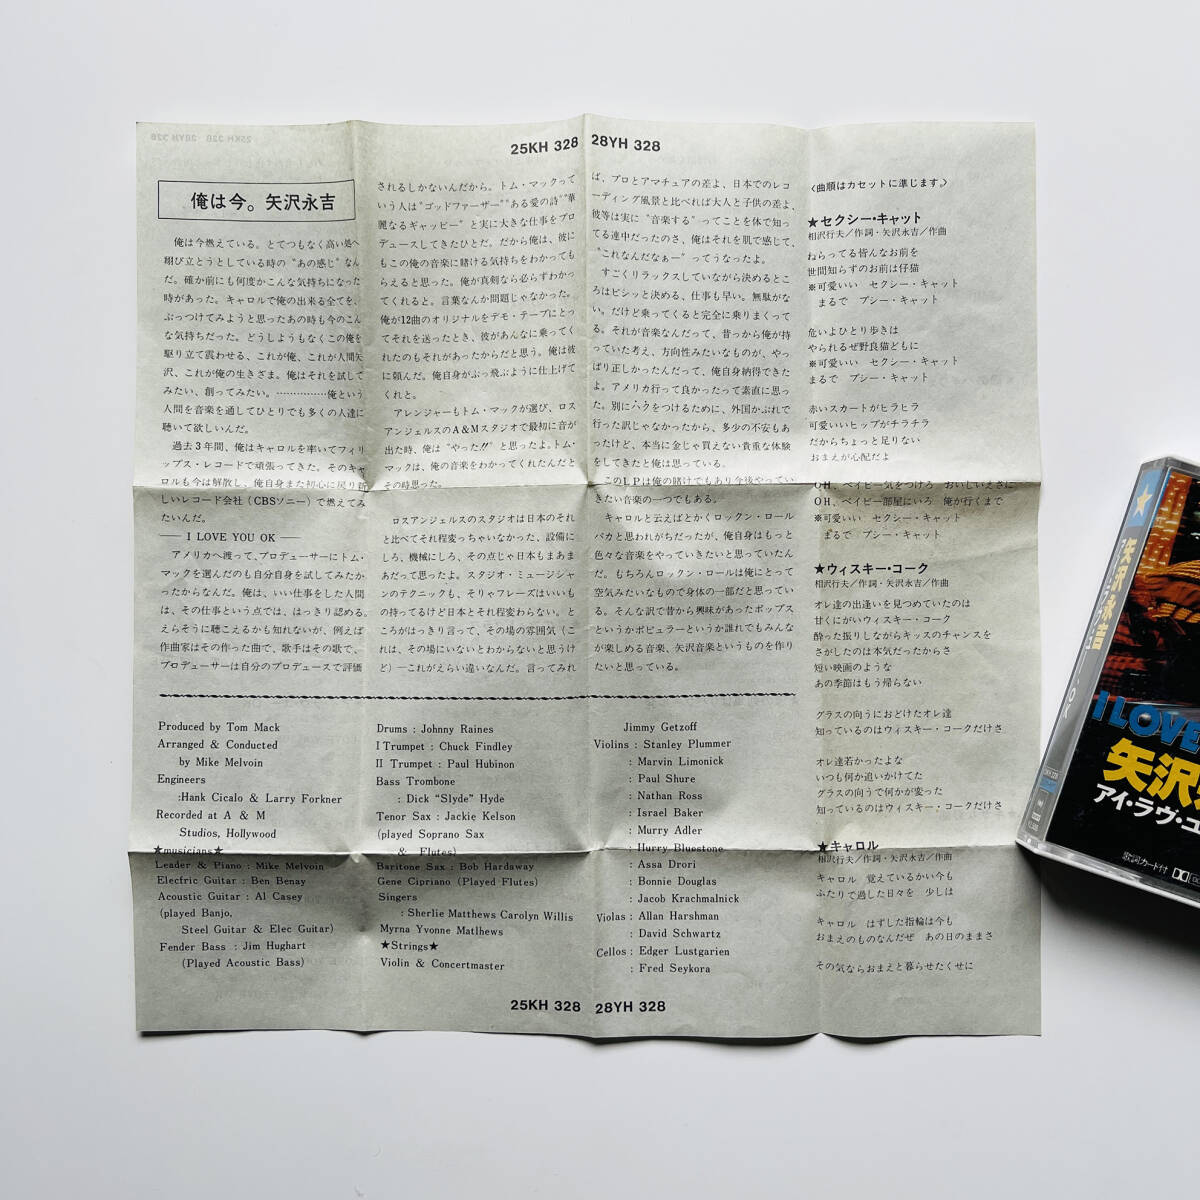 25KH 328 28YH 328
俺は今。矢沢永吉
俺は今燃えている。とてつもなく高い処へ
翔び立とうとしている時の〝あの感じ〟なん
だ。確か前にも何度かこんな気持ちになった
時があった。キャロルで俺の出来る全てを、
ぶっつけてみようと思ったあの時も今のこん
な気持ちだった。どうしようもなくこの俺を
駆り立て震わせる、これが俺、これが人間矢
沢、これが俺の生きざま。俺はそれを試して
みたい、創ってみたい。……………俺という
人間を音楽を通してひとりでも多くの人達に
聴いて欲しいんだ。
過去3年間、俺はキャロルを率いてフィリ
ップス・レコードで頑張ってきた。そのキャ
ロルも今は解散し、俺自身また初心に戻り新
しいレコード会社(CBSソニー)で燃えてみ
たいんだ。
── I LOVE YOU OK ──
アメリカへ渡って、プロデューサーにトム・
マックを選んだのも自分自身を試してみたか
ったからなんだ。俺は、いい仕事をした人間
は、その仕事という点では、はっきり認める。
えらそうに聴こえるかも知れないが、例えば
作曲家はその作った曲で、歌手はその歌で、
プロデューサーは自分のプロデュースで評価
されるしかないんだから。トム・マックって
いう人は〝ゴッドファーザー〟〝ある愛の詩〟〝華
麗なるギャッビー〟と実に大きな仕事をプロ
デュースしてきたひとだ。だから俺は、彼に
もこの俺の音楽に賭ける気持ちをわかっても
らえると思った。俺が真剣なら必らずわかっ
てくれると。言葉なんか問題じゃなかった。
俺が12曲のオリジナルをデモ・テープにとっ
てそれを送ったとき、彼があんなに乗ってく
れたのもそれがあったからだと思う。俺は彼
に頼んだ。俺自身がぶっ飛ぶように仕上げて
くれと。
アレンジャーもトム・マックが選び、ロス
アンジェルスのA&Mスタジオで最初に音が
出た時、俺は〝やった!!〟と思ったよ。トム・
マックは、俺の音楽をわかってくれたんだと
その時思った。
ロスアンジェルスのスタジオは日本のそれ
と比べてそれ程変っちゃいなかった、設備に
しろ、機械にしろ、その点じゃ日本もまあま
あだって思ったよ。スタジオ・ミュージシャ
ンのテクニックも、そりゃフレーズはいいも
の持ってるけど日本とそれ程変わらない。と
ころがはっきり言って、その場の雰囲気(こ
れは、その場にいないとわからないと思うけ
ど)―これがえらい違いなんだ。言ってみれ
ば、プロとアマチュアの差よ、日本でのレコ
ーディング風景と比べれば大人と子供の差よ、
彼等は実に〝音楽する〟ってことを体で知っ
てる連中だったのさ、俺はそれを肌で感じて、
〝これなんだなぁー〟ってうなったよ。
すごくリラックスしていながら決めるとこ
ろはビシッと決める、仕事も早い。無駄がな
い。だけど乗ってくると完全に乗りまくって
る。それが音楽なんだって、昔っから俺が持
っていた考え、方向性みたいなものが、やっ
ぱり正しかったんだって、俺自身納得できた
よ。アメリカ行って良かったって素直に思っ
た。別にハクをつけるために、外国かぶれで
行った訳じゃなかったから、多少の不安もあ
ったけど、本当に金じゃ買えない貴重な体験
をしてきたと俺は思っている。
このLPは俺の賭けでもあり今後やってい
きたい音楽の一つでもある。
キャロルと云えばとかくロックン・ロール
バカと思われがちだったが、俺自身はもっと
色々な音楽をやっていきたいと思っていたん
だ。もちろんロックン・ロールは俺にとって
空気みたいなもので身体の一部だと思ってい
る。そんな訳で昔から興味があったポップス
というかポピュラーというか誰れでもみんな
が楽しめる音楽、矢沢音楽というものを作り
たいと思っている。
Produced by Tom Mack
Arranged & Conducted
by Mike Melvoin
Engineers
:Hank Cicalo & Larry Forkner
Recorded at A & M
Studios, Hollywood
★musicians★
Leader & Piano : Mike Melvoin
Elecfric Guitar : Ben Benay
Acoustic Guitar : Al Casey
(played Banjo,
Steel Guitar & Elec Guitar)
Fender Bass : Jim Hughart
(Played Acoustic Bass)
Drums : Johnny Raines
I Trumpet : Chuck Findley
II Trumpet : Paul Hubinon
Bass Trombone
: Dick “Slyde” Hyde
Tenor Sax : Jackie Kelson
(played Soprano Sax
& Flutes)
Baritone Sax : Bob Hardaway
Gene Cipriano (Played Flutes)
Singers
: Sherlie Matthews Carolyn Willis
Myrna Yvonne Matlhews
★Strings★
Violin & Concertmaster
Jimmy Getzoff
Violins : Stanley Plummer
: Marvin Limonick
: Paul Shure
: Nathan Ross
: Israel Baker
: Murry Adler
: Hurry Bluestone
: Assa Drori
: Bonnie Douglas
: Jacob Krachmalnick
Violas : Allan Harshman
: David Schwartz
Cellos : Edger Lustgarien
: Fred Seykora
〈曲順はカセットに準じます。〉
★セクシー・キャット
相沢行夫/作詞・矢沢永吉/作曲
ねらってる皆んなお前を
世間知らずのお前は仔猫
※可愛いい セクシー・キャット
まるで プシー・キャット
危いよひとり歩きは
やられるぜ野良猫どもに
※可愛いい セクシー・キャット
まるで プシー・キャット
赤いスカートがヒラヒラ
可愛いいヒップがチラチラ
だからちょっと足りない
おまえが心配だよ
OH、ベイビー気をつけろ おいしいえさに
OH、ベイビー部屋にいろ 俺が行くまで
※可愛いい セクシー・キャット
まるで プシー・キャット
★ウィスキー・コーク
相沢行夫/作詞・矢沢永吉/作曲
オレ達の出逢いを見つめていたのは
甘くにがいウィスキー・コーク
酔った振りしながらキッスのチャンスを
さがしたのは本気だったからさ
短い映画のような
あの季節はもう帰らない
グラスの向うにおどけたオレ達
知っているのはウィスキー・コークだけさ
オレ達若かったよな
いつも何か追いかけてた
グラスの向うで何かが変った
知っているのはウィスキー・コークだけさ
★キャロル
相沢行夫/作詞・矢沢永吉/作曲
キャロル 覚えているかい今も
ふたりで過した日々を 少しは
キャロル はずした指輪は今も
おまえのものなんだぜ あの日のままさ
その気ならおまえと暮らせたくせに
25KH 328 28YH 328
矢沢永吉
I LOVE
矢沢
アイ・ラヴ・ユ
歌詞カード付